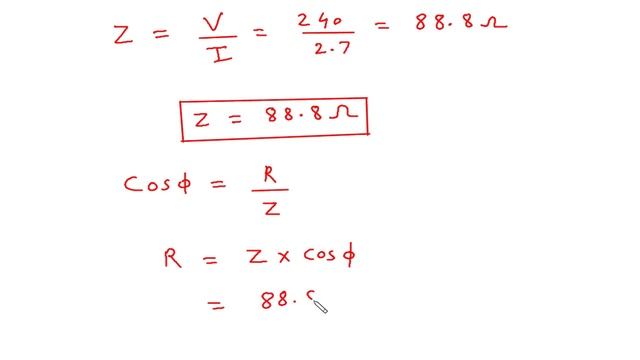 Z = V/I = 240/2.7 = 88.8 Ω
Z = 88.8 Ω
Cosϕ = R/Z
R = Z × cosϕ
= 88.